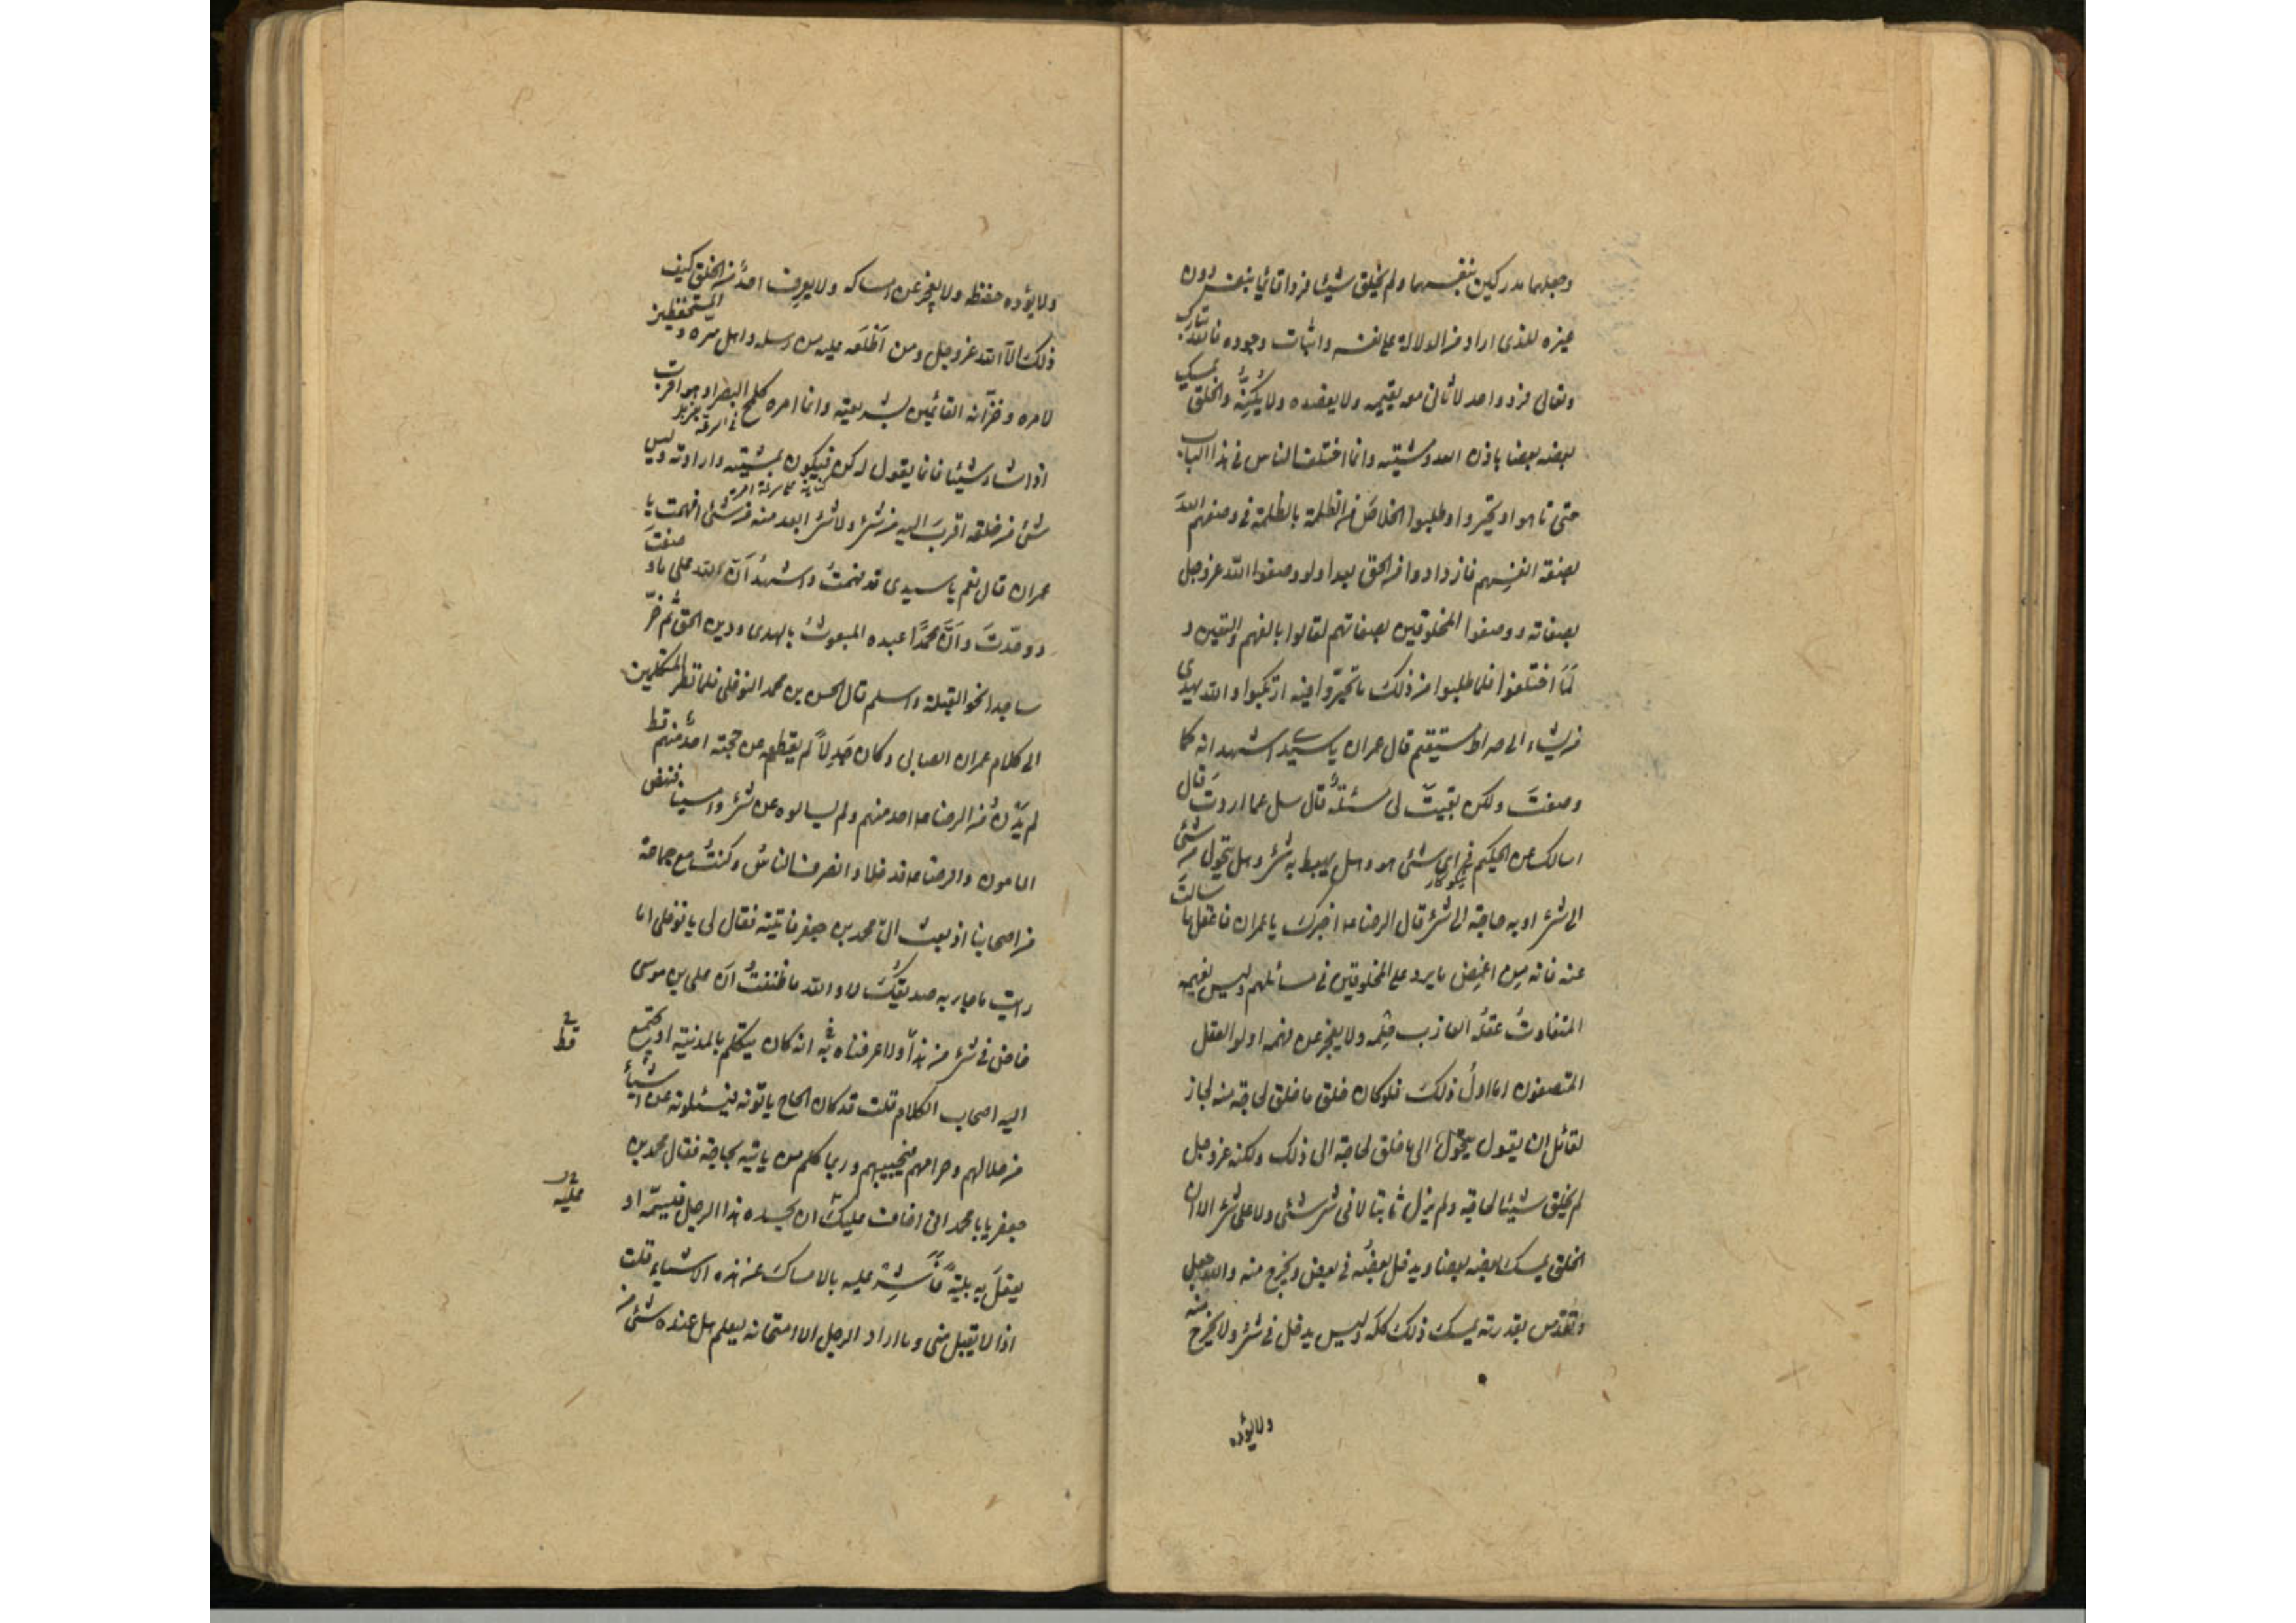 وجعلهما مدركين بنفسهما ولم يخلق شيئا فردا قائما بنفسه دون
غيره للذى اراد من الدلالة على نفسه واثبات وجوده فالله تبارك
وتعالى فرد واحد لا ثانى معه يقيمه ولا يعضده ولا يُكِنُّه والخلق يمسك
بعضه بعضا باذن الله ومشيته وانما اختلف الناس فى هذا الباب
حتى تاهوا وتحيّروا وطلبوا الخلاصَ من الظلمة بالظلمة فى وصفهم اللهَ
بصفة انفسِهم فازدادوا من الحق بعدا ولو وصفوا الله عزوجل
بصفاته ووصفوا المخلوقين بصفاتهم لقالوا بالفهم واليقين و
لَمَا اختلفوا فلما طلبوا من ذلك ما تحيّروا فيه ارتبكوا والله يهدى
من يشاء الى صراط مستقيم قال عمران يا سيّدى اشهد انه كما
وصفتَ ولكن بقيتْ لى مسئلةٌ قال سل عما اردتَ قال
اسالك عن الحكيم فى اى شئ هو وهل يحيط به شئ وهل يتحول من شئ
الى شئ او به حاجة الى شئ قال الرضا ع اخبرك يا عمران فاعقل ما سالتَ
عنه فانه مِن اغمض ما يرد على المخلوقين فى مسائلهم وليس يفهمه
المتفاوتُ عقلُه العازب حِلمه ولا يعجز عن فهمه اولوا العقل
المتصفون اما اولُ ذلك فلو كان خلق ما خلق لحاجة منه لجاز
لقائل ان يقول يتحوّل الى ما خلق لحاجة الى ذلك ولكنه عزوجل
لم يخلق شيئا لحاجة ولم يزل ثابتا لا فى شئ ولا على شئ الا ان
الخلق يمسك بعضه بعضا ويدخل بعضُه فى بعض ويخرج منه والله جل
وتقدّس بقدرته يمسك ذلك كلَّه وليس يدخل فى شئ ولا يخرج منه
ولا يؤده
ولا يؤده حفظه ولا يعجز عن امساكه ولا يعرف احدٌ من الخلق كيف
ذلك الا الله عزوجل ومن اَطْلَعَه عليه من رسله واهل سرّه و المستحفظين
لامره وخزّانه القائمين بشريعته وانما امره كلمح البصر او هو اقرب
اذا شاء شيئا فانما يقول له كن فيكون بمشيته وارادته وليس
شئ من خلقه اقربَ اليه من شئ ولا شئ ابعد منه من شئ افهمت يا
عمران قال نعم يا سيدى قد فهمتُ واشهدُ اَنّ الله على ما وصفتَ
ووحّدتَ واَنّ محمدًا عبده المبعوثُ بالهدى ودين الحق ثم خرّ
ساجدا نحو القبلة واسلم قال الحسن بن محمد النوفلى فلما نظر المتكلمين
الى كلام عمران الصابى وكان جَدِلاً لم يقطعه عن حجته احدٌ منهم قط
لم يَدْنُ من الرضا ع احد منهم ولم يسالوه عن شئ وامسينا فنهض
المامون والرضا ع فدخلا وانصرف الناسُ وكنتُ مع جماعة
من اصحابنا اذ بعث الىّ محمد بن جعفر فاتيته فقال لى يا نوفلى اما
رايت ما جاء به صديقُك لا والله ما ظننتُ اَنّ على بن موسى
خاض فى شئ من هذا ولا عرفناه به انه كان يتكلم بالمدينة او يجتمع
قط
اليه اصحاب الكلام قلت قد كان الحاج ياتونه فيسئلونه عن اشياءَ
من حلالهم وحرامهم فيجيبهم وربما كلم من ياتيه بحاجة فقال محمد بن
جعفر يا با محمد انى اخاف عليك ان يحسده هذا الرجل فيسمّه او
عليه
يفعلَ به بليةً فاَشِر عليه بالامساك عن هذه الاشياءِ قلت
اذا لا يقبل منى وما اراد الرجل الا امتحانه ليعلم هل عنده شئ من